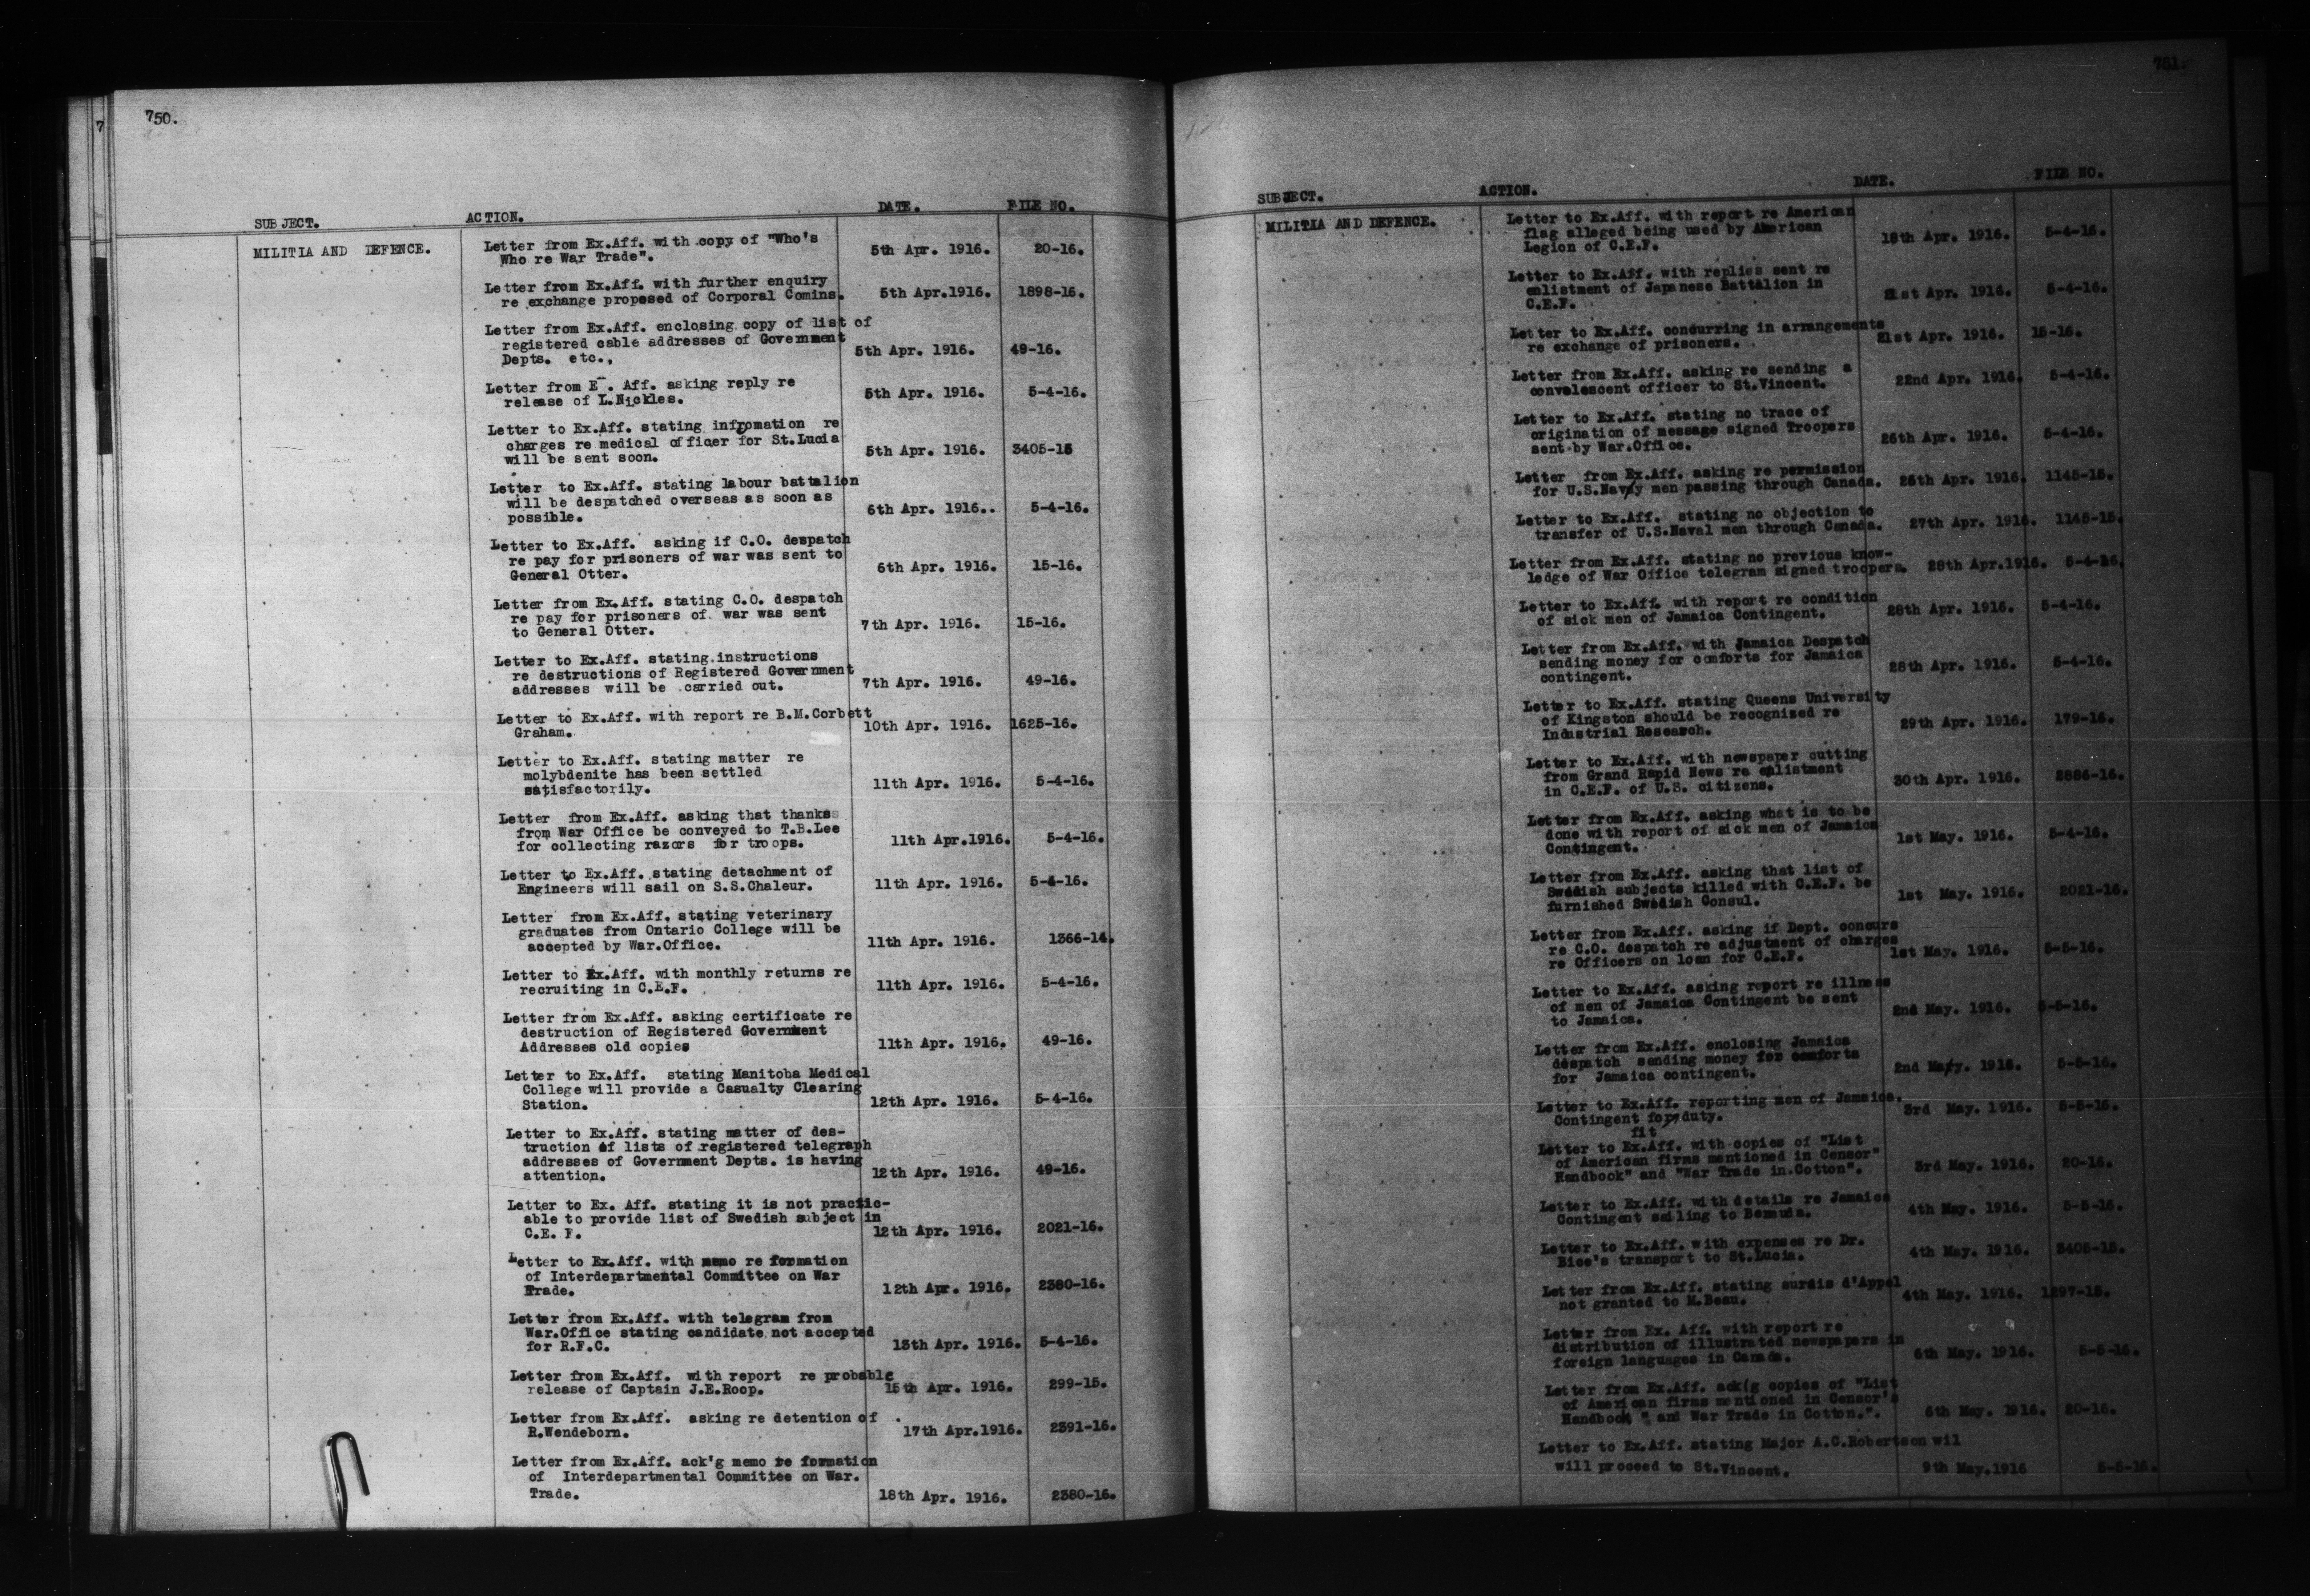 7
750.
SUBJECT. ACTION. DATE. FILE NO.
MILITIA AND DEFENCE. Letter from Ex.Aff. with copy of "Who's
Who re War Trade". 5th Apr. 1916. 20-16.
Letter from Ex.Aff. with further enquiry
re exchange proposed of Corporal Comins. 5th Apr.1916. 1898-16.
Letter from Ex.Aff. enclosing copy of list of
registered cable addresses of Government
Depts. etc., 5th Apr. 1916. 49-16.
Letter from E . Aff. asking reply re
release of L.Nickles. 5th Apr. 1916. 5-4-16.
Letter to Ex.Aff. stating infromation re
charges re medical officer for St.Lucia
will be sent soon. 5th Apr. 1916. 3405-15
Letter to Ex.Aff. stating labour battalion
will be despatched overseas as soon as
possible. 6th Apr. 1916.. 5-4-16.
Letter to Ex.Aff. asking if C.O. despatch
re pay for prisoners of war was sent to
General Otter. 6th Apr. 1916. 15-16.
Letter from Ex.Aff. stating C.O. despatch
re pay for prisoners of war was sent
to General Otter. 7th Apr. 1916. 15-16.
Letter to Ex.Aff. stating instructions
re destructions of Registered Government
addresses will be carried out. 7th Apr. 1916. 49-16.
Letter to Ex.Aff. with report re B.M.Corbett
Graham. 10th Apr. 1916. 1625-16.
Letter to Ex.Aff. stating matter re
molybdenite has been settled
satisfactorily. 11th Apr. 1916. 5-4-16.
Letter from Ex.Aff. asking that thanks
from War Office be conveyed to T.B.Lee
for collecting razors for troops. 11th Apr.1916. 5-4-16.
Letter to Ex.Aff. stating detachment of
Engineers will sail on S.S.Chaleur. 11th Apr. 1916. 5-4-16.
Letter from Ex.Aff. stating veterinary
graduates from Ontario College will be
accepted by War.Office. 11th Apr. 1916. 1366-14.
Letter to Ex.Aff. with monthly returns re
recruiting in C.E.F. 11th Apr. 1916. 5-4-16.
Letter from Ex.Aff. asking certificate re
destruction of Registered Government
Addresses old copies 11th Apr. 1916. 49-16.
Letter to Ex.Aff. stating Manitoba Medical
College will provide a Casualty Clearing
Station. 12th Apr. 1916. 5-4-16.
Letter to Ex.Aff. stating matter of des-
truction of lists of registered telegraph
addresses of Government Depts. is having
attention. 12th Apr. 1916. 49-16.
Letter to Ex. Aff. stating it is not practic-
able to provide list of Swedish subject in
C.E. F. 12th Apr. 1916. 2021-16.
Letter to Ex.Aff. with memo re formation
of Interdepartmental Committee on War
Trade. 12th Apr. 1916. 2380-16.
Letter from Ex.Aff. with telegram from
War.Office stating candidate not accepted
for R.F.C. 13th Apr. 1916. 5-4-16.
Letter from Ex.Aff. with report re probable
release of Captain J.E.Roop. 15th Apr. 1916. 299-15.
Letter from Ex.Aff. asking re detention of
R.Wendeborn. 17th Apr.1916. 2391-16.
Letter from Ex.Aff. ack'g memo re formation
of Interdepartmental Committee on War.
Trade. 18th Apr. 1916. 2380-16.
751.
SUBJECT. ACTION. DATE. FILE NO.
MILITIA AND DEFENCE. Letter to Ex.Aff. with report re American
flag alleged being used by American
Legion of C.E.F. 18th Apr. 1916. 5-4-16.
Letter to Ex.Aff. with replies sent re
enlistment of Japanese Battalion in
C.E.F. 21st Apr. 1916. 5-4-16.
Letter to Ex.Aff. concurring in arrangements
re exchange of prisoners. 21st Apr. 1916. 15-16.
Letter from Ex.Aff. asking re sending a
convalescent officer to St.Vincent. 22nd Apr. 1916. 5-4-16.
Letter to Ex.Aff. stating no trace of
origination of message signed Troopers
sent by War.Office. 26th Apr. 1916. 5-4-16.
Letter from Ex.Aff. asking re permission
for U.S.Navy men passing through Canada. 26th Apr. 1916. 1145-15.
Letter to Ex.Aff. stating no objection to
transfer of U.S.Naval men through Canada. 27th Apr. 1916. 1145-15.
Letter from Ex.Aff. stating no previous know-
ledge of War Office telegram signed troopers. 28th Apr.1916. 5-4-16.
Letter to Ex.Aff. with report re condition
of sick men of Jamaica Contingent. 28th Apr. 1916. 5-4-16.
Letter from Ex.Aff. with Jamaica Despatch
sending money for comforts for Jamaica
contingent. 28th Apr. 1916. 5-4-16.
Letter to Ex.Aff. stating Queens University
of Kingston should be recognized re
Industrial Research. 29th Apr. 1916. 179-16.
Letter to Ex.Aff. with newspaper cutting
from Grand Rapid News re enlistment
in C.E.F. of U.S. citizens. 30th Apr. 1916. 2886-16.
Letter from Ex.Aff. asking what is to be
done with report of sick men of Jamaica
Contingent. 1st May. 1916. 5-4-16.
Letter from Ex.Aff. asking that list of
Swedish subjects killed with C.E.F. be
furnished Swedish Consul. 1st May. 1916. 2021-16.
Letter from Ex.Aff. asking if Dept. concurs
re C.O. despatch re adjustment of charges
re Officers on loan for C.E.F. 1st May. 1916. 5-5-16.
Letter to Ex.Aff. asking report re illness
of men of Jamaica Contingent be sent
to Jamaica. 2nd May. 1916. 5-5-16.
Letter from Ex.Aff. enclosing Jamaica
despatch sending money for comforts
for Jamaica contingent. 2nd May. 1916. 5-5-16.
Letter to Ex.Aff. reporting men of Jamaica.
Contingent for duty. 3rd May. 1916. 5-5-16.
fit
Letter to Ex.Aff. with copies of "List
of American firms mentioned in Censor"
Handbook" and "War Trade in Cotton". 3rd May. 1916. 20-16.
Letter to Ex.Aff. with details re Jamaica
Contingent sailing to Bermuda. 4th May. 1916. 5-5-16.
Letter to Ex.Aff. with expenses re Dr.
Bice's transport to St.Lucia. 4th May. 1916. 3405-15.
Letter from Ex.Aff. stating sursis d'Appel
not granted to M.Beau. 4th May. 1916. 1297-15.
Letter from Ex. Aff. with report re
distribution of illustrated newspapers in
foreign languages in Canada. 6th May. 1916. 5-5-16.
Letter from Ex.Aff. ack'g copies of "List
of American firms mentioned in Censor's
Handbook " and War Trade in Cotton.". 6th May. 1916. 20-16.
Letter to Ex.Aff. stating Major A.C.Robertson wil
will proceed to St.Vincent. 9th May.1916 5-5-16.